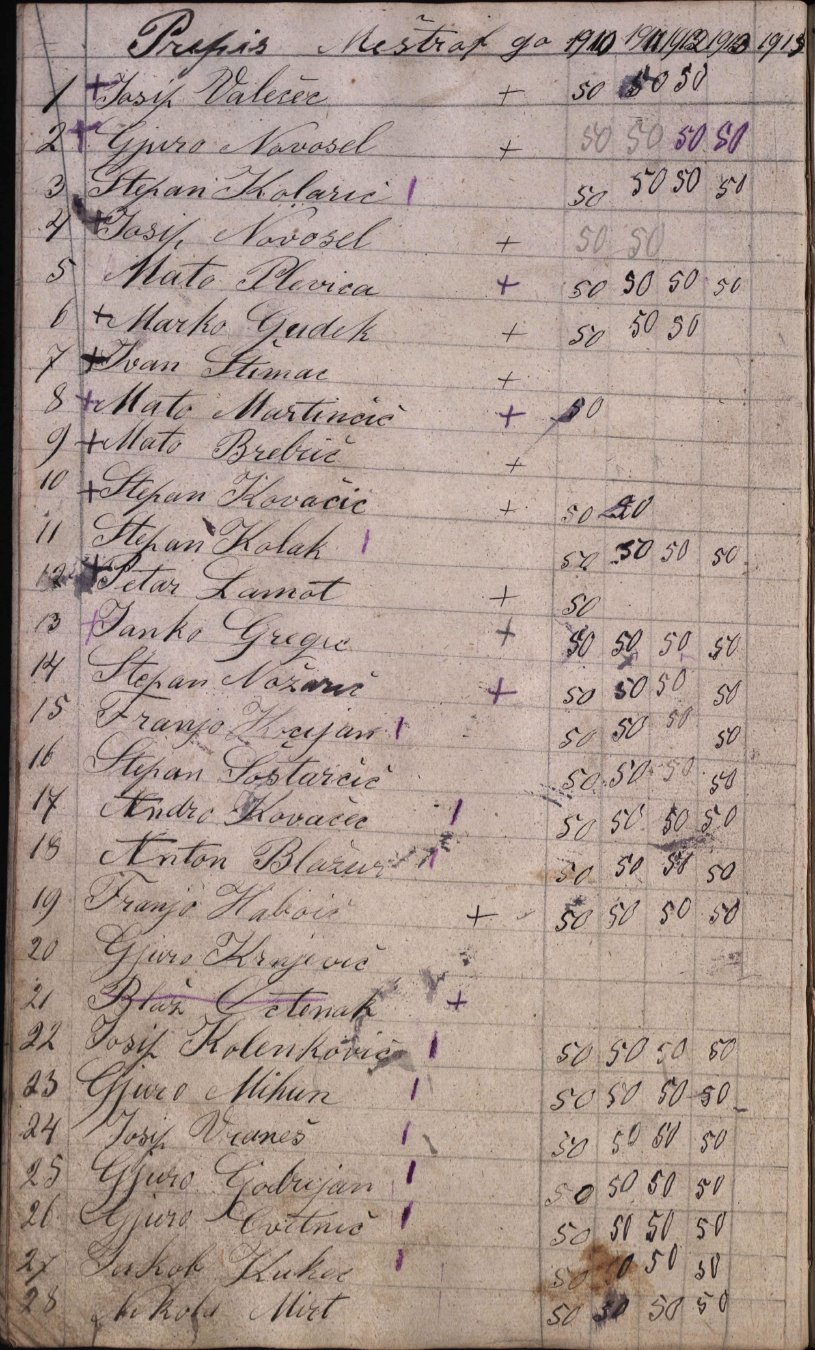 Prepis Meštrof go 1910 1911 1912 1913 1913
1 + Josip Valečec + 50 50 50
2 + Gjuro Novosel + 50 50 50 50
3 Stepan Kolarić | 50 50 50 50
4 + Josip Novosel + 50 50
5 Mato Plevica + 50 50 50 50
6 + Marko Gudek + 50 50 50
7 + Ivan Štimac +
8 + Mato Martinčić + 50
9 + Mato Brebrić +
10 + Stepan Kovačić + 50 50
11 Stepan Kolak | 50 50 50 50
12 + Petar Lamot + 50
13 + Janko Gregić + 50 50 50 50
14 Stepan Nožarić + 50 50 50 50
15 Franjo Kocijan | 50 50 50 50
16 Stepan Šostarčić 50 50 50 50
17 Andro Kovačec | 50 50 50 50
18 Anton Blažur | 50 50 50 50
19 Franjo Haboić + 50 50 50 50
20 Gjuro Krajević
21 Blaž Octenak +
22 Josip Kolenković | 50 50 50 50
23 Gjuro Mihun | 50 50 50 50
24 Josip Vraneš | 50 50 50 50
25 Gjuro Godrijan | 50 50 50 50
26 Gjuro Cvitnić | 50 50 50 50
27 Jakob Kukec | 50 50 50 50
28 Nikola Mirt 50 50 50 50